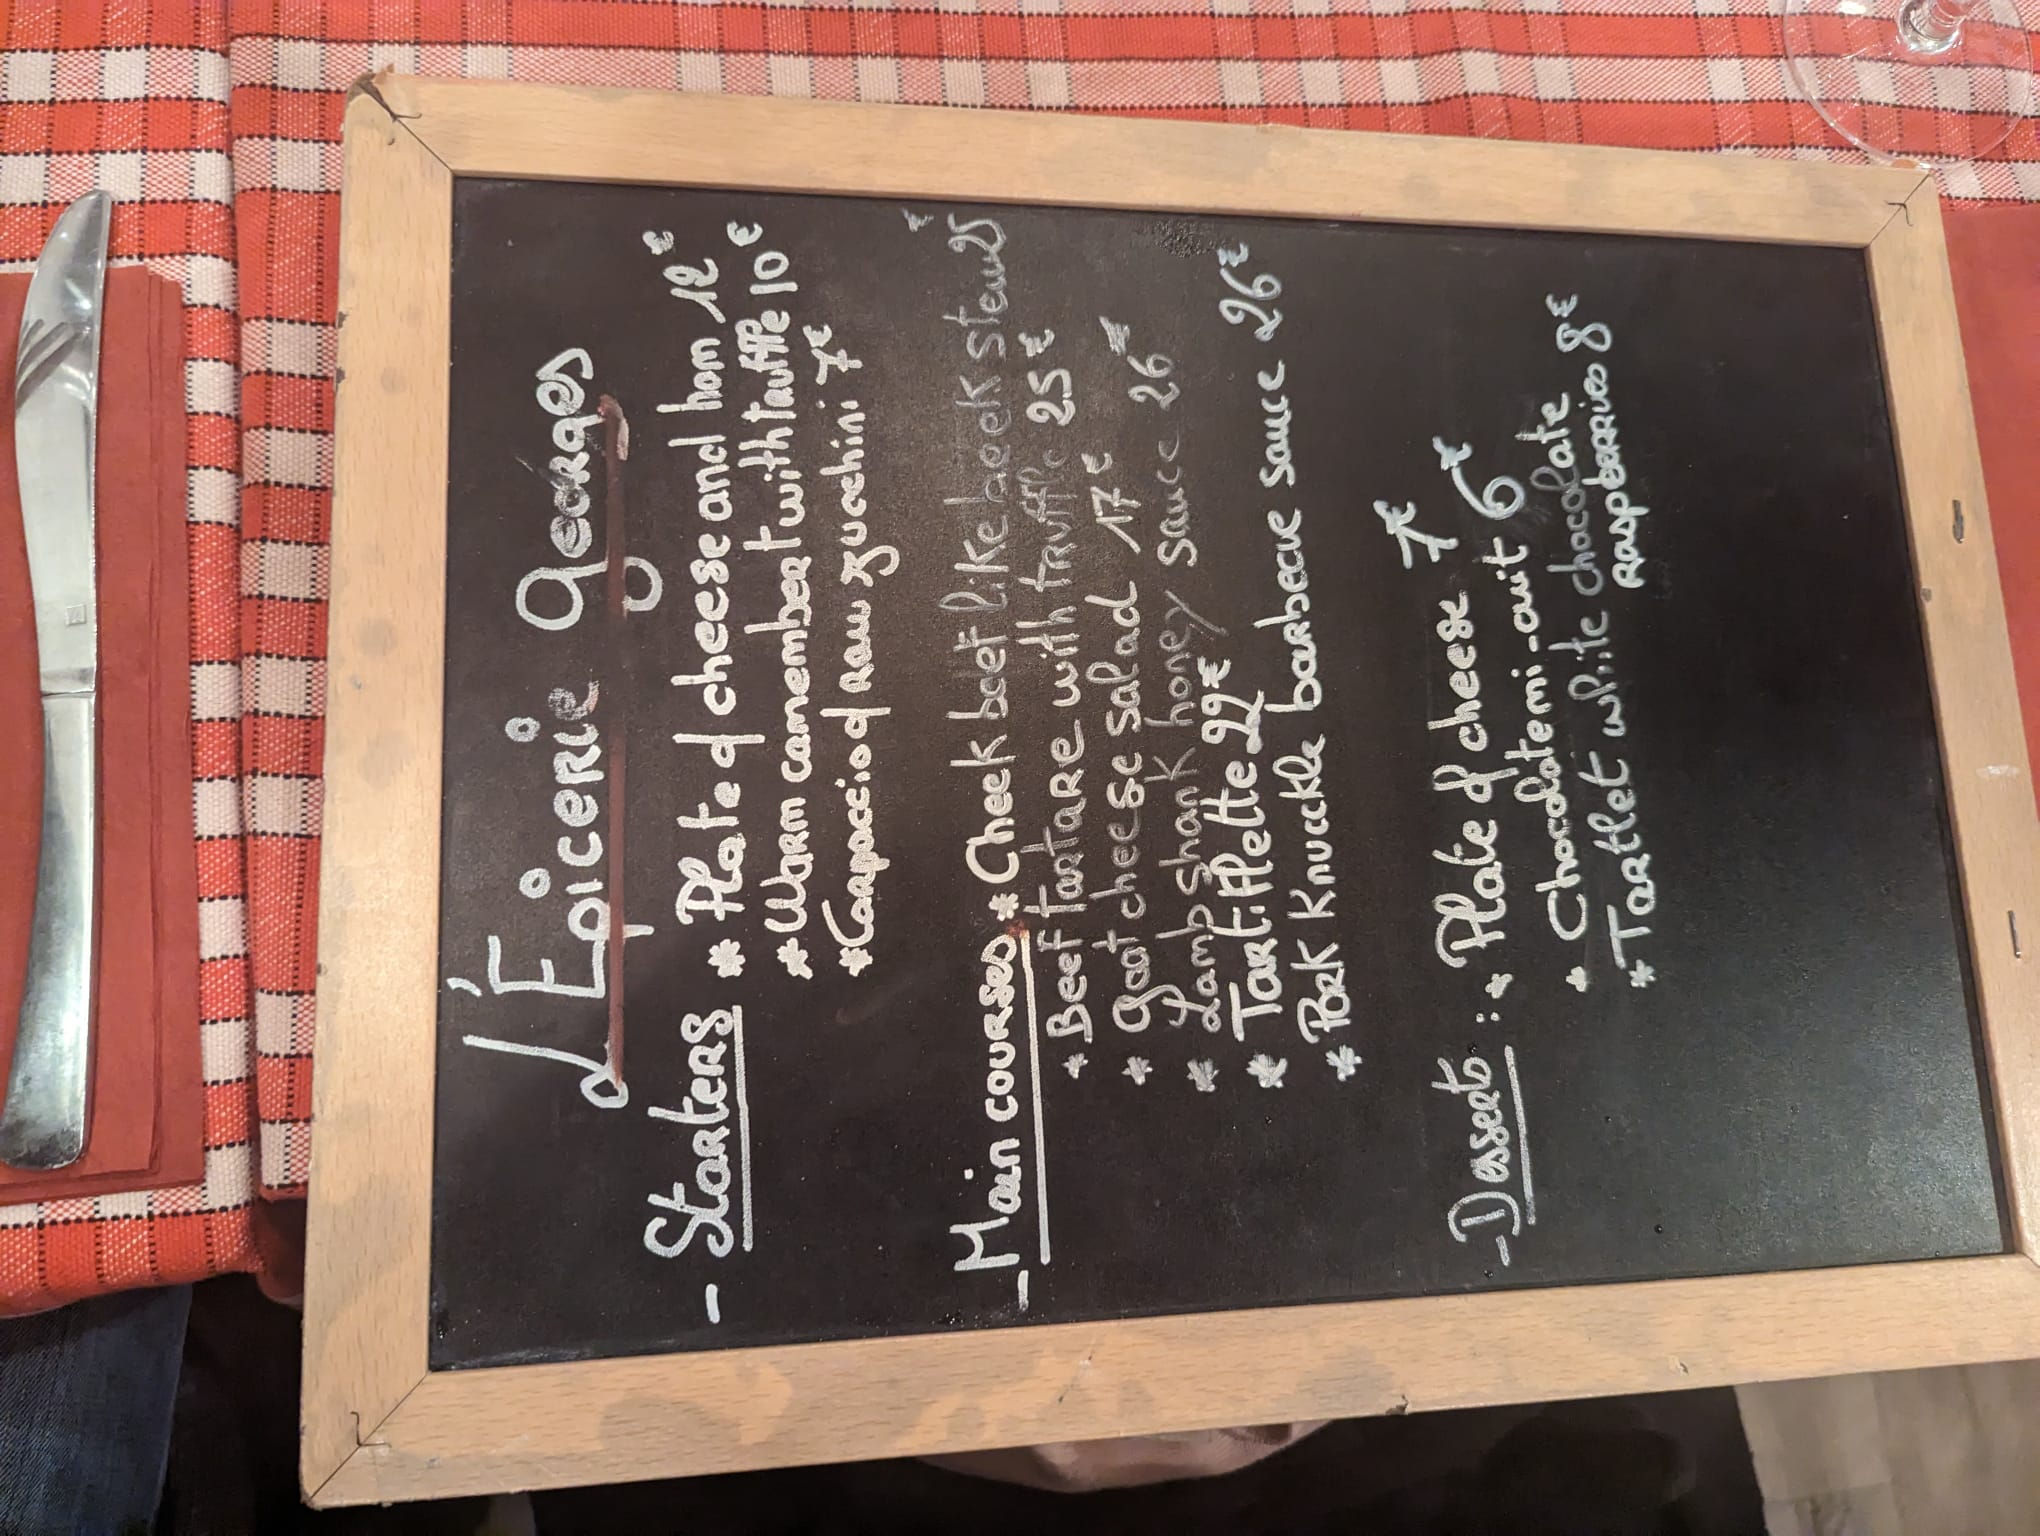 L'Épicerie Georges
- Starters * Plate of cheese and ham 12€
* Warm camembert with tauffle 10€
* Carpaccio of raw zucchini 7€
- Main courses * Cheek beef like leek stew 25€
* Beef tartare with truffle 25€
* Goat cheese salad 17€
* Lamb shank honey sauce 26€
* Tartiflette 22€
* Pork Knuckle barbecue sauce 26€
- Desserts : * Plate of cheese 7€
* Chocolatemi-cuit 6€
* Tartlet white chocolate
Raspberries 8€